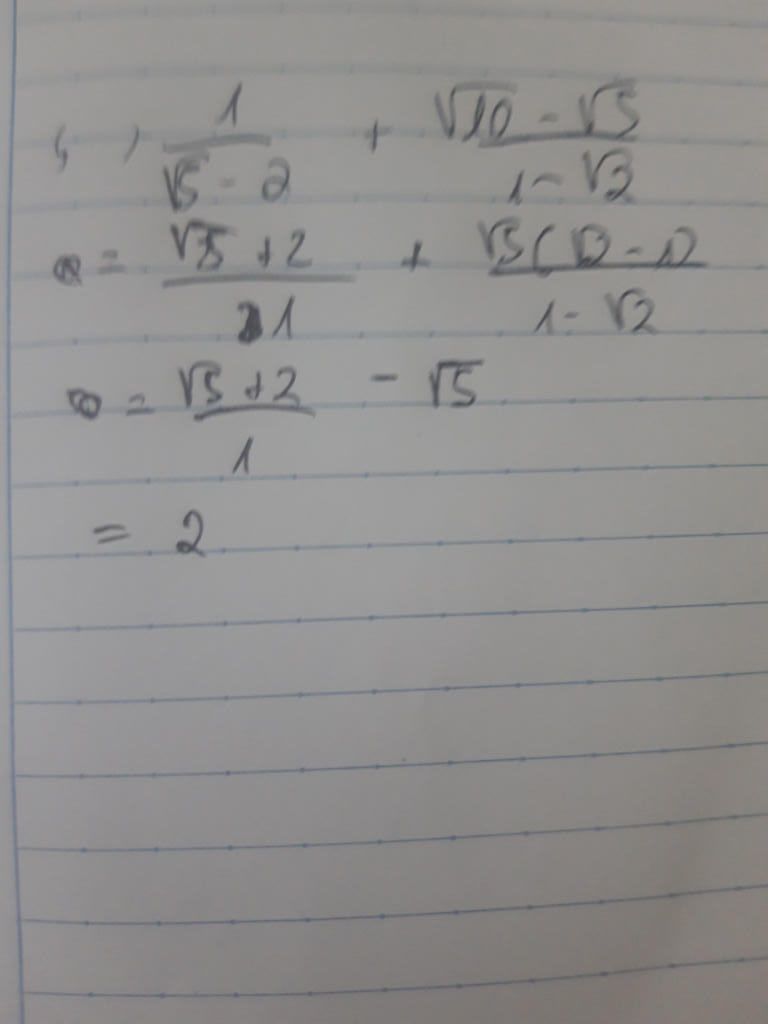 , ) 1/(√5 - 2) + (√10 - √5)/(1 - √2)
= (√5 + 2)/1 + √5(√2 - 1)/(1 - √2)
= (√5 + 2)/1 - √5
= 2